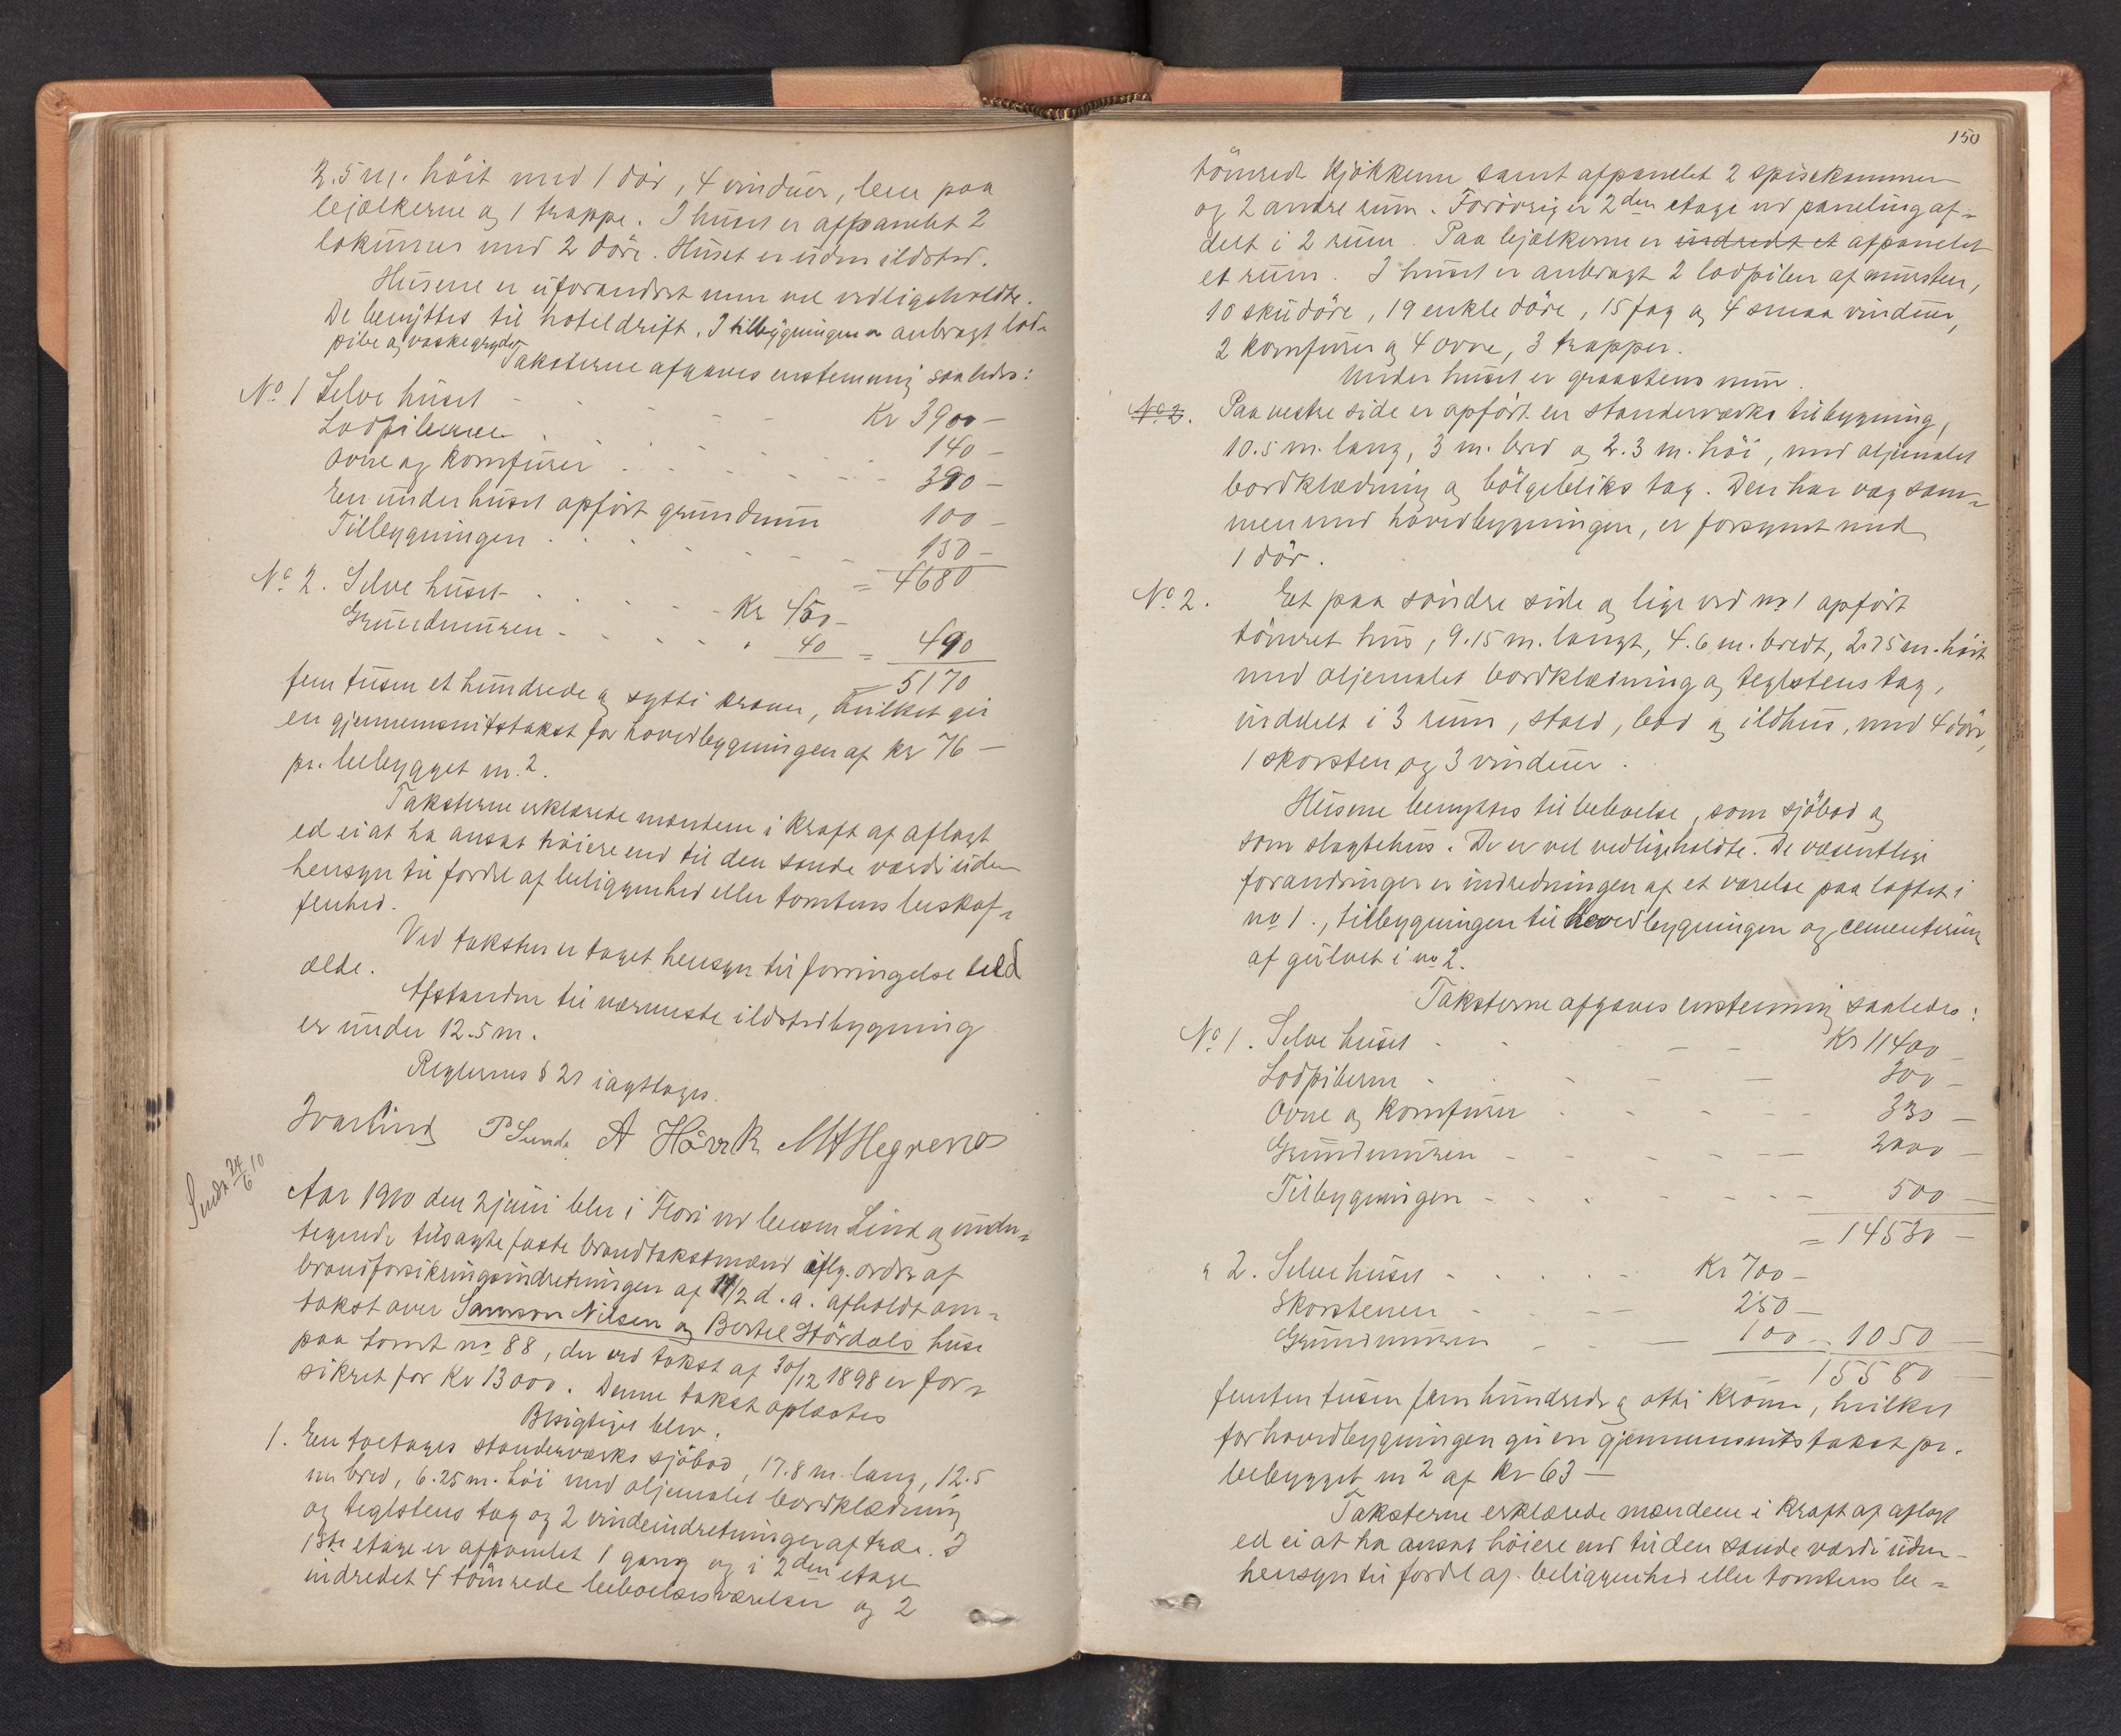 2.5 m. höit med 1 dör, 4 vinduer, lem paa
bjelkerne og 1 trappe. I huset er affpanelet 2
lokummer med 2 döre. Huset er uden ildsted.
Husene er uforandret men vel vedligeholdte.
De benyttes til hoteldrift. I tilbygningen er anbragt lod-
pibe og vaskegryde
Taksterne afgaves enstemmig saaledes:
No 1 Selve huset - Kr 3900 -
Lodpiberne. 140 -
Ovne og komfurer 390 -
En under huset opfört grundmur 100 -
Tilbygningen 150 -
= 4680
No 2. Selve huset - Kr 450 -
Grundmuren - " 40 = 490
= 5170
fem tusen et hundrede og sytti kroner, hvilket gir
en gjennemsnitstakst for hovedbygningen af kr 76 -
pr. bebygget m.2.
Taksterne erklærede mændene i kraft af aflagt
ed ei at ha ansat höiere end til den sande værdi uden
hensyn til fordel af beliggenhed eller tomtens beskaf-
fenhed.
Ved taksten er taget hensyn til forringelse ved
ælde.
Afstanden til nærmeste ildstedbygning
er under 12.5 m.
Reglernes § 21 iagttages.
Ivar Lind P Sunde A Hårvik M A Hegrenæs
Sendt 24/6 10
Aar 1910 den 2 juni blev i Florö ved lensm Lind og under-
tegnede tilsagte faste brandtakstmænd iflg. ordre af
brandforsikringsindretningen af 14/2 d. a. afholdt om-
takst over Samson Nilsen og Bertel Stördals huse
paa tomt no 88, der ved takst af 30/12 1898 er for-
sikret for Kr 13000. Denne takst oplæstes
Besigtiget blev.
1. En toetages standerværks sjöbod, 17.8 m. lang, 12.5
m bred, 6.25 m. höi med oljemalet bordklædning
og teglstens tag og 2 vindeindretninger af træ. I
1ste etage er afpanelet 1 gang og i 2den etage
indredet 4 tömrede beboelsesværelser og 2
150
tömrede kjökkener samt afpanelet 2 spisekammer
og 2 andre rum. Forövrig er 2den etage ved paneling af-
delt i 2 rum. Paa bjelkerne er indredt et afpanelet
et rum. I huset er anbragt 2 lodpiber af mursten,
10 skudöre, 19 enkle döre, 15 fag og 4 smaa vinduer,
2 komfurer og 4 ovne, 3 trapper.
Under huset er graastens mur.
No 2. Paa vestre side er opfört en standerværks tilbygning,
10.5 m. lang, 3 m. bred og 2.3 m. höi, med oljemalet
bordklædning og bölgebliks tag. Den har væg sam-
men med hovedbygningen, er forsynet med
1 dör.
No 2. Et paa söndre side og lige ved no 1 opfört
tömret hus, 9.15 m. langt, 4.6 m. bredt, 2.75 m. höit
med oljemalet bordklædning og teglstens tag,
inddelt i 3 rum, stald, bod og ildhus, med 4 döre,
1 skorsten og 3 vinduer.
Husene benyttes til beboelse, som sjöbod og
som slagtehus. De er vel vedligeholdte. De væsentlige
forandringer er indredningen af et værelse paa loftet i
no 1., tilbygningen til hovedbygningen og cementering
af gulvet i no 2.
Taksterne afgaves enstemmig saaledes:
No 1. Selve huset - Kr 11400 -
Lodpiberne - 300 -
Ovne og komfurer - 330 -
Grundmuren - 2000 -
Tilbygningen - 500 -
= 14530 -
" 2. Selve huset - Kr 700 -
Skorstenen - 250 -
Grundmuren - 100 - 1050 -
15580 -
femten tusen fem hundrede og otti kroner, hvilket
for hovedbygningen gir en gjennemsnitstakst pr.
bebygget m 2 af kr 63 -
Taksterne erklærede mændene i kraft af aflagt
ed ei at ha ansat höiere end til den sande værdi uden
hensyn til fordel af beliggenhed eller tomtens be-